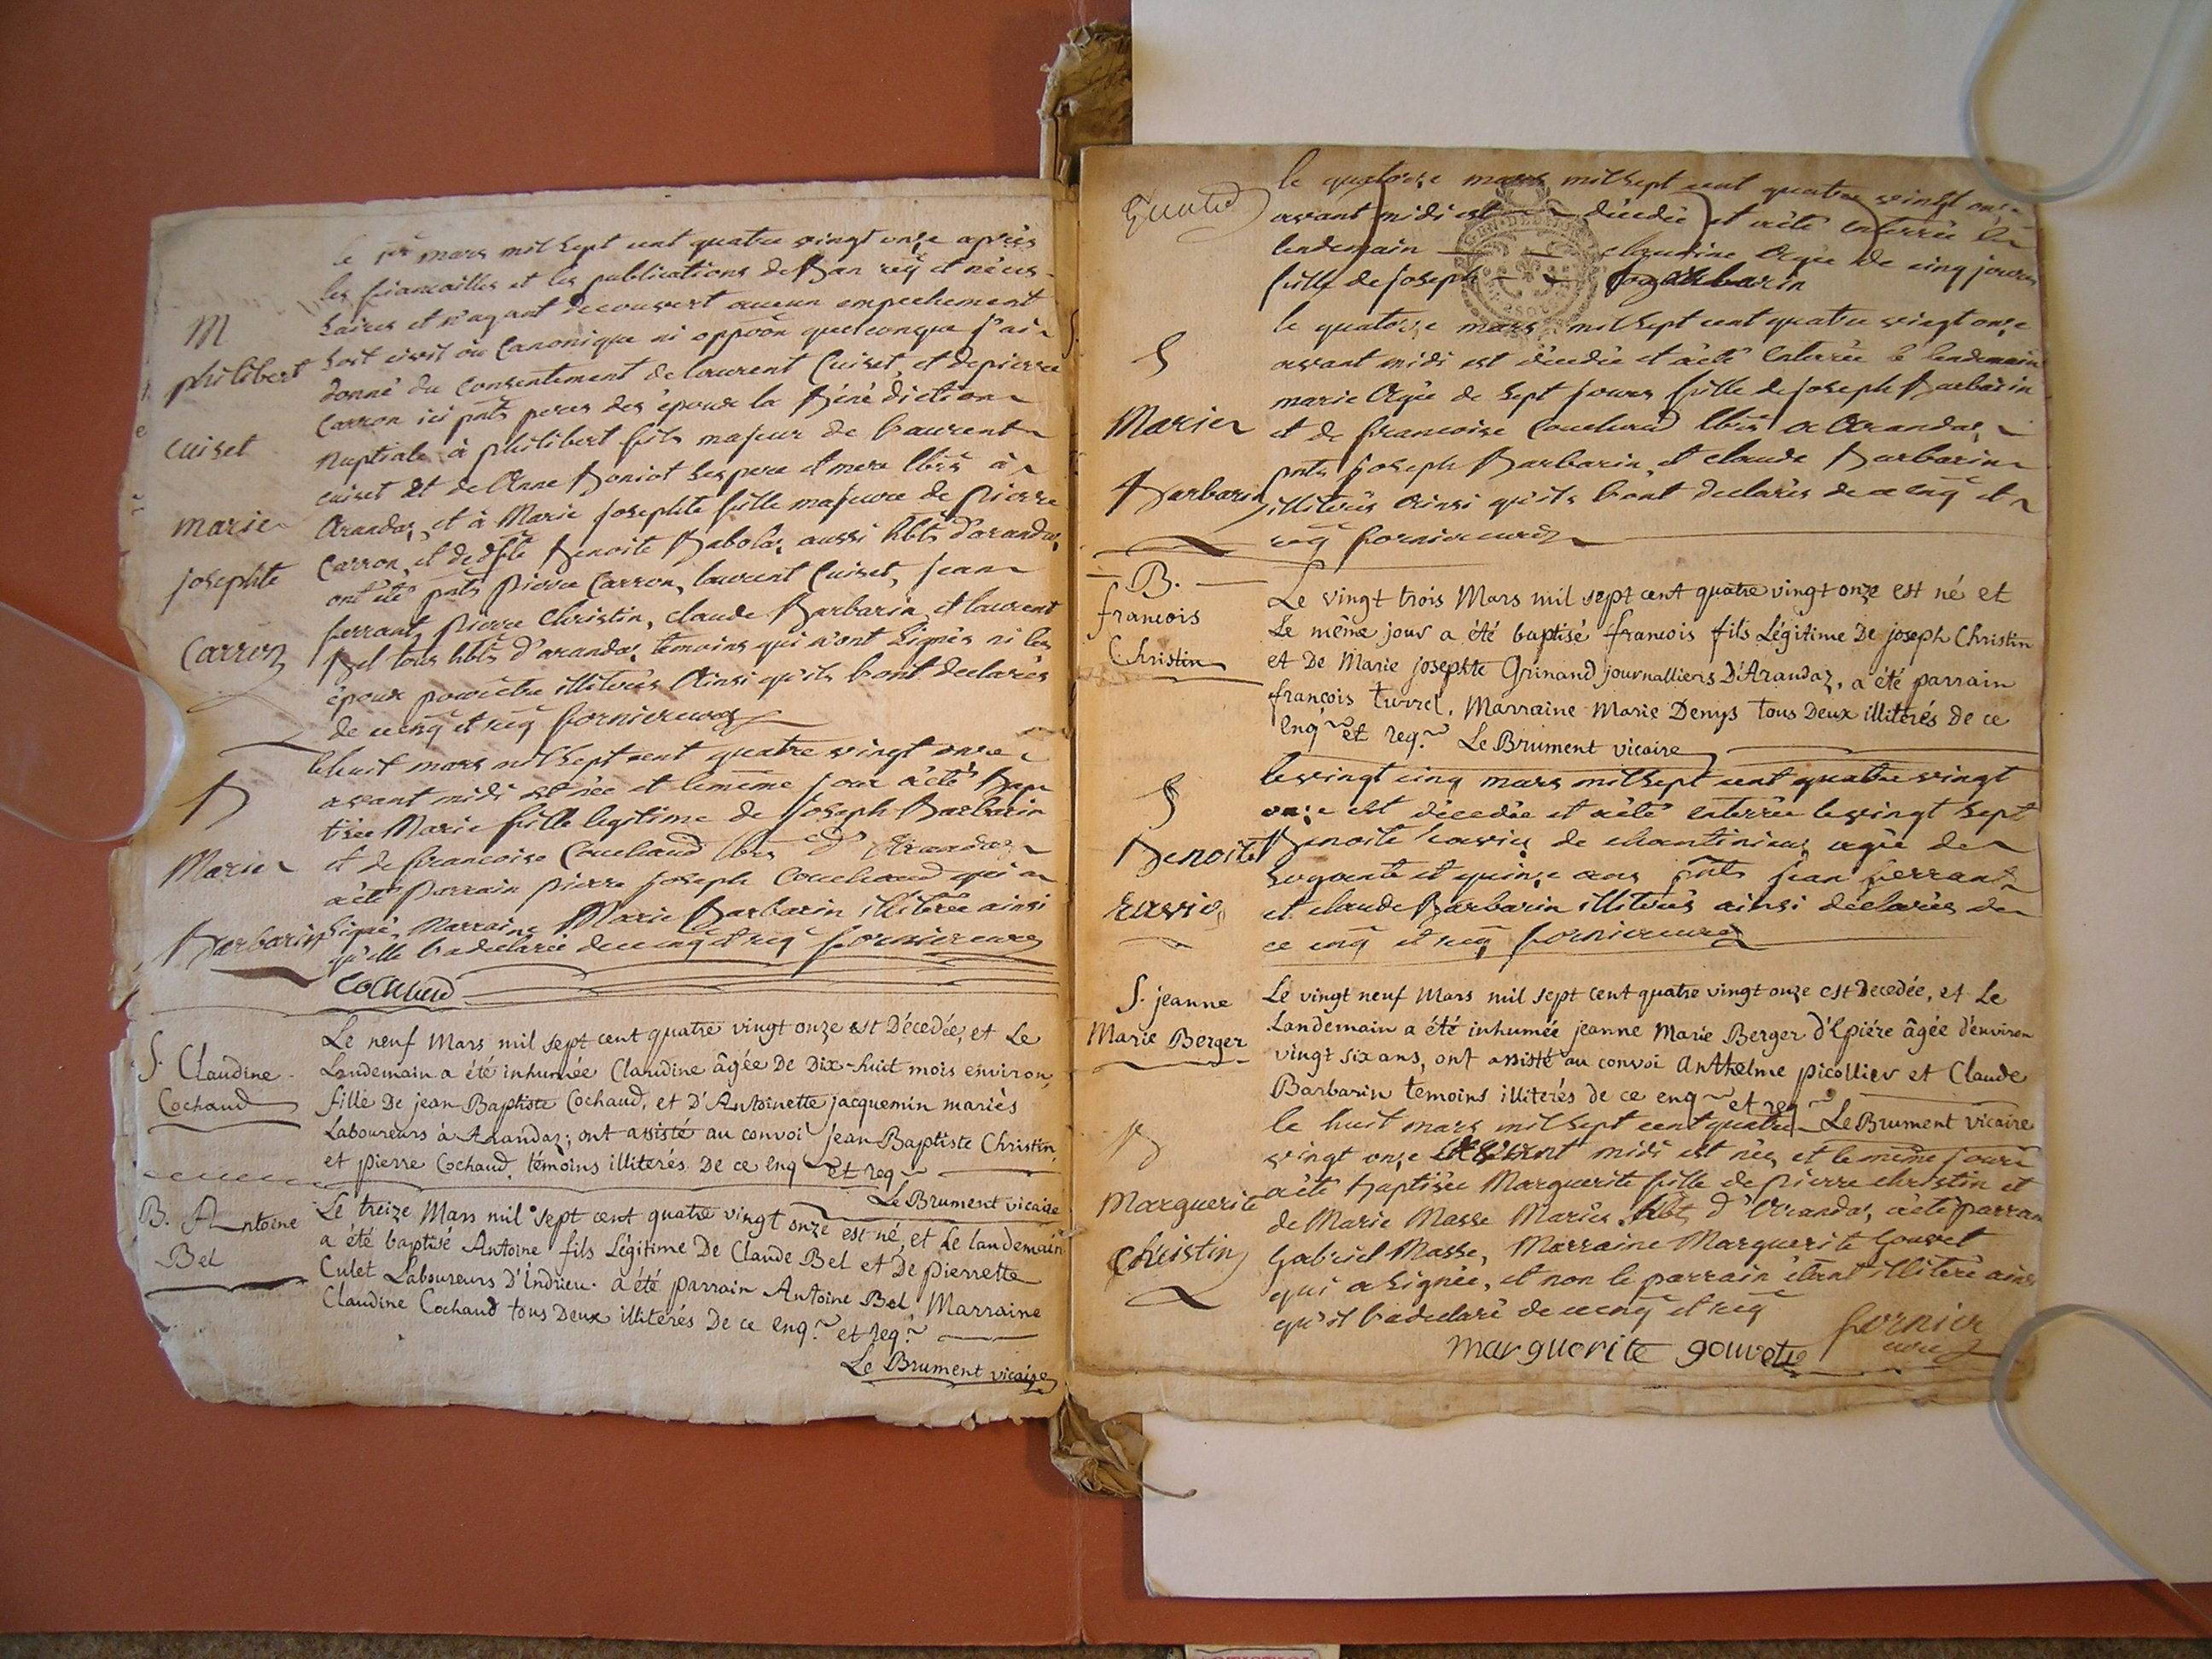 M
philibert
cuiset
marie
josephte
Carron
le 1er mars mil sept cent quatre vingt onze après
les fiancailles et les publications de Ban req et néces
saires et n'ayant decouvert aucun empechement
soit civil ou Canonique ni oppoon quelconque j'ai
donné du Consentement de laurent Cuiset, et de pierre
Carron ici pnts peres des époux la Bénédiction
Nuptiale à philibert fils majeur de Laurent
cuiset et de Anne Boniot ses pere et mere hbts à
Arandaz, et à Marie josephte fille majeure de Pierre
Carron, et de dfte Benoite Babolaz aussi hbts d'arandaz
ont été pnts Pierre Carron, laurent Cuiset, jean
ferrant, Pierre Christin, claude Barbarin, et laurent
Bel tous hbts d'arandaz temoins qui n'ont signés ni les
époux pour être illiterés Ainsi qu'ils l'ont declarés
de ce enq et req fornier curé
B
Marie
Barbarin
le huit mars mil sept cent quatre vingt onze
avant midi est née et le même jour a été Bap
tisée Marie fille legitime de Joseph Barbarin
et de francoise Couchaud hbts D'Arandaz
a été Parrain pierre joseph Couchaud qui a
signé, Marraine Marie Barbarin illiterée ainsi
qu'elle l'a declarée de ce enq et req fornier curé
Cochaud
S. Claudine
Cochaud
Le neuf Mars mil sept cent quatre vingt onze est Décedée, et Le
Landemain a été inhumée Claudine âgée De Dix-huit mois environ,
fille De jean Baptiste Cochaud, et D'Antoinette jacquemin mariés
Laboureurs à Arandaz; ont assisté au convoi jean Baptiste Christin,
et pierre Cochaud, témoins illiterés De ce enq et req
Le Brument vicaire
B. Antoine
Bel
Le treize Mars mil sept cent quatre vingt onze est né, et Le landemain
a été baptisé Antoine fils Légitime De Claude Bel et De pierrette
Culet Laboureurs D'Indrieu. a été parrain Antoine Bel, Marraine
Claudine Cochaud tous Deux illiterés De ce enq. et req.
Le Brument vicaire
le quatorze mars mil sept cent quatre vingt onze
avant midi est décedée et a été enterrée le
lendemain claudine Agée de cinq jours
fille de joseph Barbarin
S
Marie
Barbarin
le quatorze mars mil sept cent quatre vingt onze
avant midi est décedée et a été Enterrée le lendemain
marie Agée de sept jours fille de joseph Barbarin
et de francoise Couchaud hbts a Arandaz,
pnts joseph Barbarin, et claude Barbarin
illiterés Ainsi qu'ils l'ont declarés de ce enq et
req fornier curé
B.
francois
Christin
Le vingt trois Mars mil sept cent quatre vingt onze est né et
Le même jour a été baptisé francois fils Légitime De joseph Christin
et De Marie josephte Grinand journalliers D'Arandaz, a été parrain
françois turrel, Marraine Marie Denys tous Deux illiterés De ce
enq. et req. Le Brument vicaire
S
Benoite
le vingt cinq mars mil sept cent quatre vingt
onze est décedée et a été enterrée le vingt sept
Benoite de agée de
soixante et quinze ans pnts jean ferrant
et claude Barbarin illiterés ainsi déclarés de
ce enq et req fornier curé
S. jeanne
Marie Berger
Le vingt neuf Mars mil sept cent quatre vingt onze est Decedée, et Le
Landemain a été inhumée jeanne Marie Berger d'Epiére âgée d'environ
vingt six ans, ont assisté au convoi Anthelme picollier et Claude
Barbarin temoins illiterés de ce enq et req
Le Brument vicaire
B
Marguerite
Christin
le huit mars mil sept cent quatre
vingt onze avant midi est née, et le même jour
a été baptisée Marguerite fille de pierre christin et
de Marie Masse Mariés hbts d'Arandaz, a été parrain
Gabriel Masse, Marraine Marguerite Gouvet
qui a signée, et non le parrain étant illiteré ainsi
qu'il l'a declaré de ce enq et req
fornier
curé
marguerite gouvet